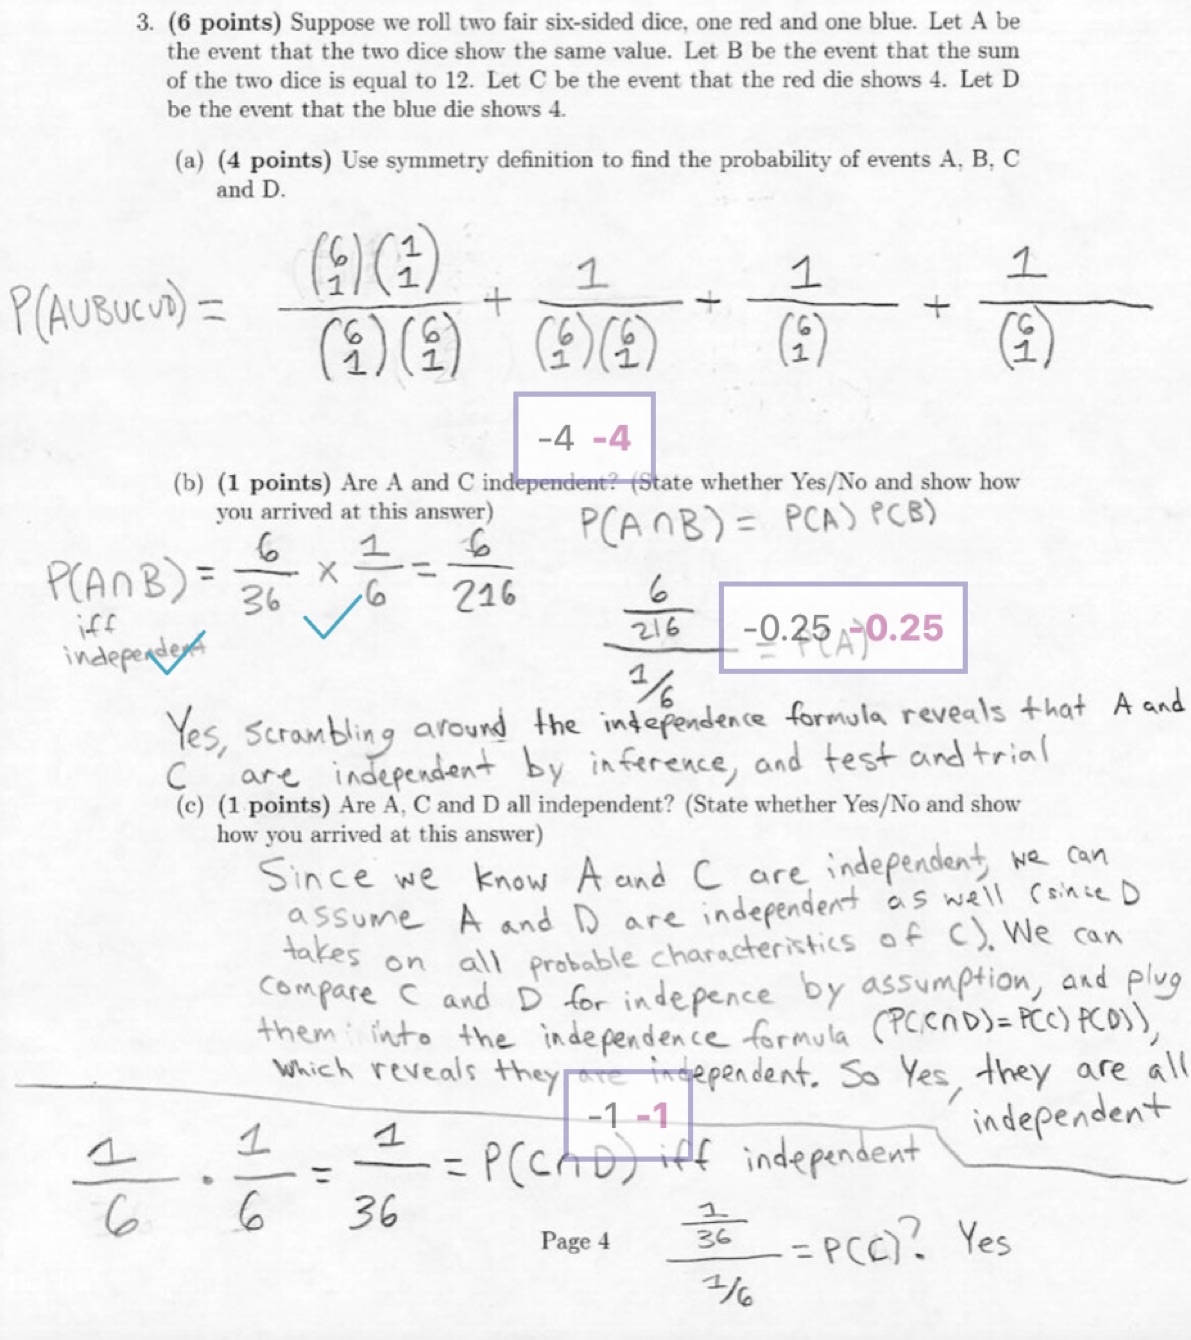 3. (6 points) Suppose we roll two fair six-sided dice, one red and one blue. Let A be
the event that the two dice show the same value. Let B be the event that the sum
of the two dice is equal to 12. Let C be the event that the red die shows 4. Let D
be the event that the blue die shows 4.
(a) (4 points) Use symmetry definition to find the probability of events A, B, C
and D.
P(A∪B∪C∪D) = (6 1)(1 1) / (6 1)(6 1) + 1 / (6 1)(6 1) + 1 / (6 1) + 1 / (6 1)
-4 -4
(b) (1 points) Are A and C independent? (State whether Yes/No and show how
you arrived at this answer)
P(A∩B) = P(A) P(B)
P(A∩B) = 6/36 × 1/6 = 6/216
iff
independent
6/216 / 1/6 = P(A)
-0.25 -0.25
Yes, scrambling around the independence formula reveals that A and
C are independent by inference, and test and trial
(c) (1 points) Are A, C and D all independent? (State whether Yes/No and show
how you arrived at this answer)
Since we know A and C are independent, we can
assume A and D are independent as well (since D
takes on all probable characteristics of C). We can
compare C and D for indepence by assumption, and plug
them into the independence formula (P(C∩D) = P(C) P(D)),
which reveals they are independent. So Yes, they are all
independent
-1 -1
1/6 · 1/6 = 1/36 = P(C∩D) iff independent
1/36 / 1/6 = P(C)? Yes
Page 4